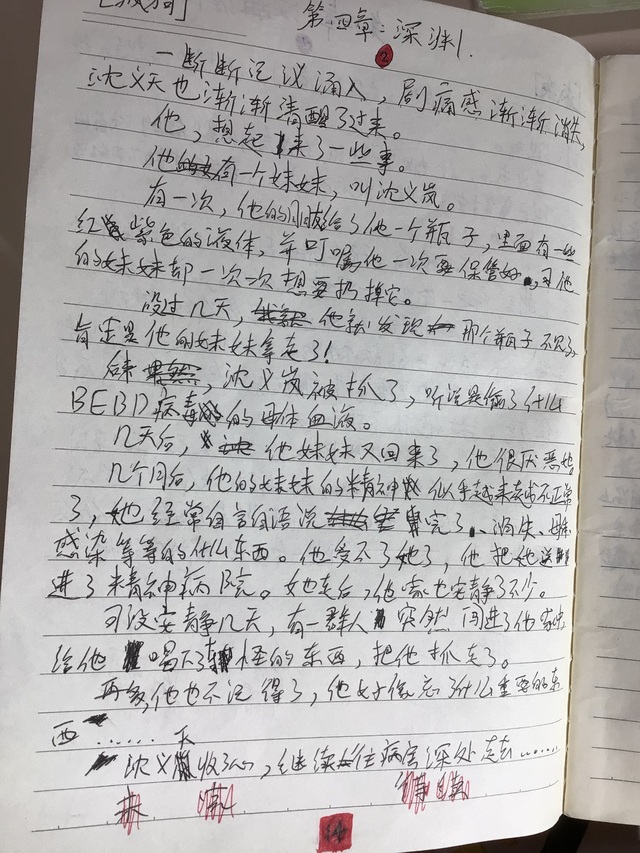 第四章：深渊
②
一断断记议涌入，剧痛感渐渐消失，
沈义天也渐渐清醒了过来。
他，想起来了一些事。
他有一个妹妹，叫沈义岚。
有一次，他的朋友给了他一个瓶子，里面有一些
红紫色的液体，并叮嘱他一次要保管好，可他
的妹妹却一次一次想要扔掉它。
没过几天，他就发现那个瓶子不见了，
肯定是他的妹妹拿走了！
后来，沈义岚被抓了，听说是偷了什么
BEBD病毒的母体血液。
几天后，他妹妹又回来了，他很厌恶她
几个月后，他的妹妹的精神似乎越来越不正常
了，她经常自言自语说完了、消失、母体
感染等等的什么东西。他受不了她了，他把她送
进了精神病院。她走后，他家也安静了不少。
可没安静几天，有一群人突然闯进了他家中，
给他喝了奇怪的东西，把他抓走了。
再多，他也不记得了，他好像忘了什么重要的东
西……
沈义天收了心，继续往病房深处走去……